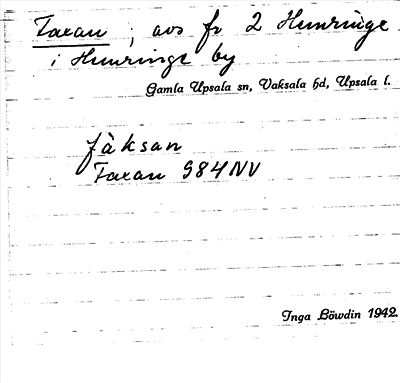 Faxan, avs fr 2 Humringe
i Humringe by
Gamla Upsala sn, Vaksala hd, Upsala l.
fàksan
Faxan 984 NV
Inga Löwdin 1942.